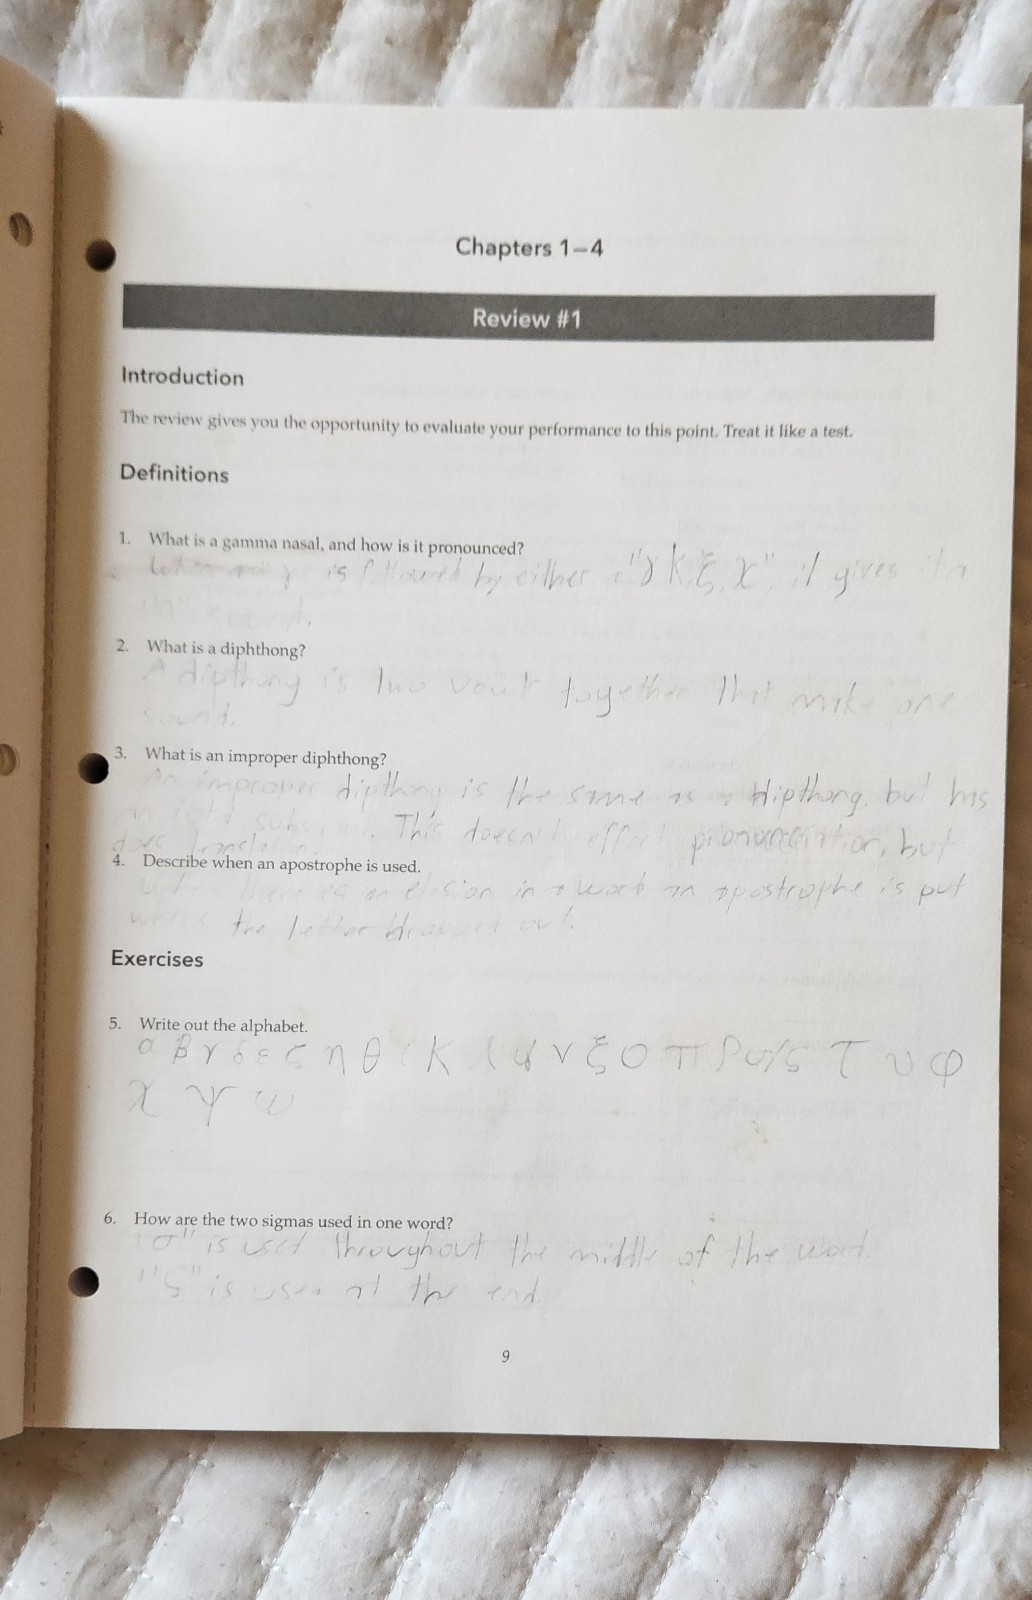 Chapters 1–4
Review #1
Introduction
The review gives you the opportunity to evaluate your performance to this point. Treat it like a test.
Definitions
1. What is a gamma nasal, and how is it pronounced?
is followed by either "γ κ, ξ, χ", it gives
"n" sound.
2. What is a diphthong?
A dipthong is two together that make one
sound.
3. What is an improper diphthong?
An improper dipthong is the same as a dipthong, but has
This doesn't effect pronunciation, but
does
4. Describe when an apostrophe is used.
there is an elision in a word an apostrophe is put
where the letter dropped out.
Exercises
5. Write out the alphabet.
α β γ δ ε ζ η θ ι κ λ μ ν ξ ο π ρ σ/ς τ υ φ
χ ψ ω
6. How are the two sigmas used in one word?
"σ" is used throughout the middle of the word.
"ς" is used at the end.
9